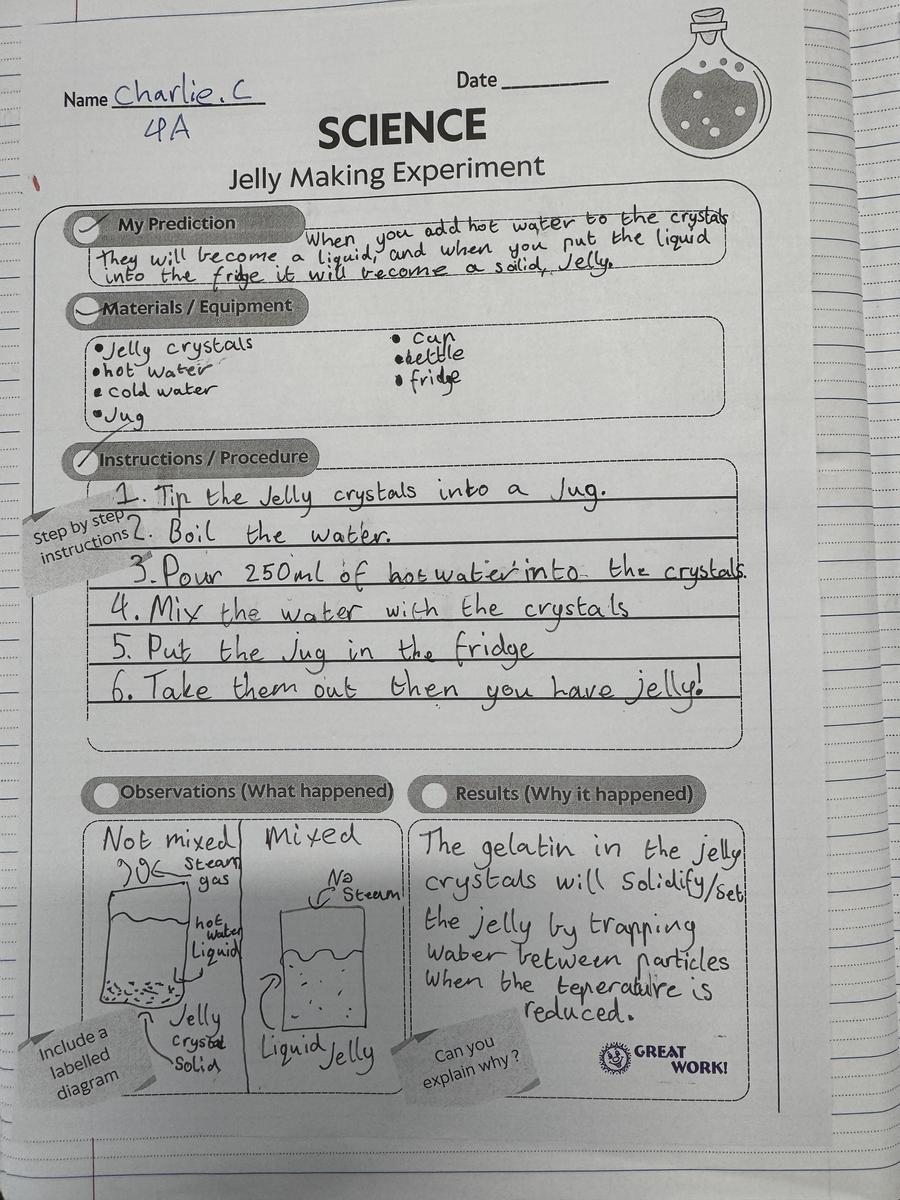 Name Charlie.C
Date
4A
SCIENCE
Jelly Making Experiment
My Prediction
When you add hot water to the crystals
they will become a liquid, and when you put the liquid
into the fridge it will become a soilid, Jelly.
Materials / Equipment
• Jelly crystals
• hot water
• cold water
• Jug
• cup
• kettle
• fridge
Instructions / Procedure
Step by step
instructions
1. Tip the Jelly crystals into a Jug.
2. Boil the water.
3. Pour 250ml of hot water into the crystals.
4. Mix the water with the crystals
5. Put the Jug in the fridge
6. Take them out then you have jelly!
Observations (What happened)
Not mixed
Steam
gas
hot
water
Liquid
Jelly
crystal
Solid
Mixed
No
Steam
Liquid Jelly
Include a
labelled
diagram
Results (Why it happened)
The gelatin in the jelly
crystals will Solidify/set
the jelly by trapping
water between particles
when the teperature is
reduced.
Can you
explain why?
GREAT
WORK!